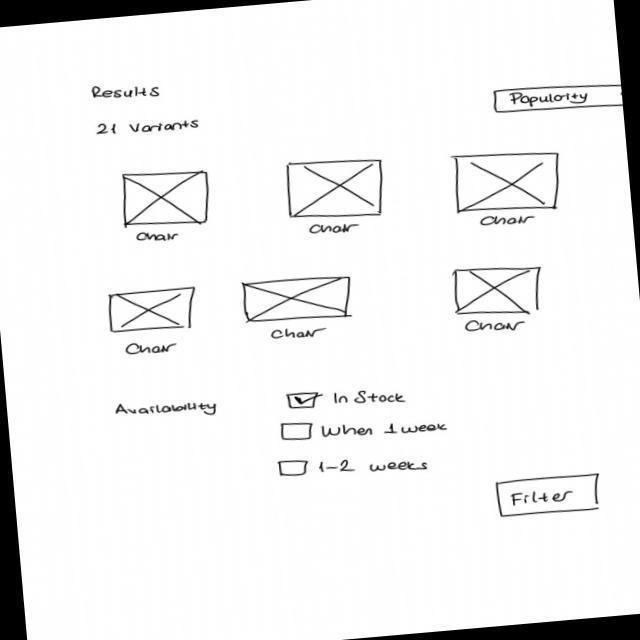 Results
Popularity
21 Variants
Chair
Chair
Chair
Chair
Chair
Chair
Availability
In Stock
When 1 week
1-2 weeks
Filter